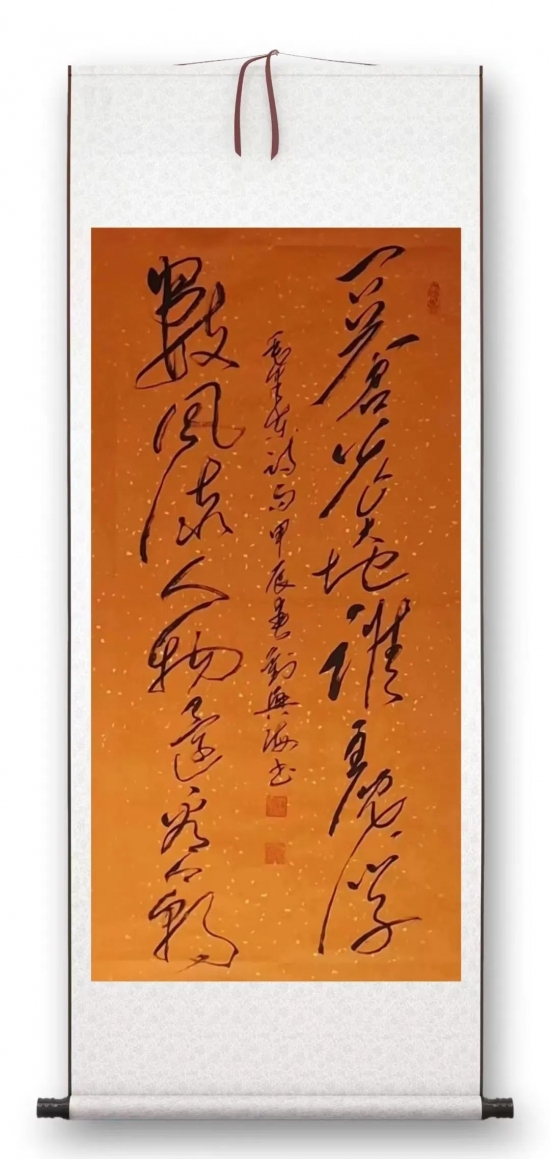 問蒼茫大地誰主沉浮
毛澤东詩句甲辰春劉興海书
數風流人物還看今朝